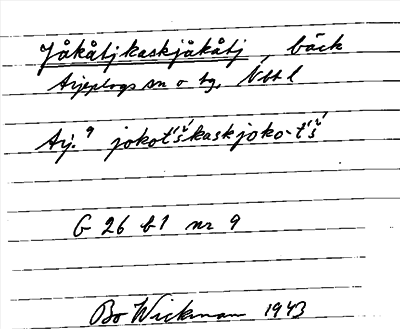 Jåkåtjkaskjåkåtj, bäck
Arjeplogs sn o tg, Nbtl
Arj. 9 jokot'š'kaskjoko-t'š'
G 26 b1 nr 9
Bo Wickman 1943